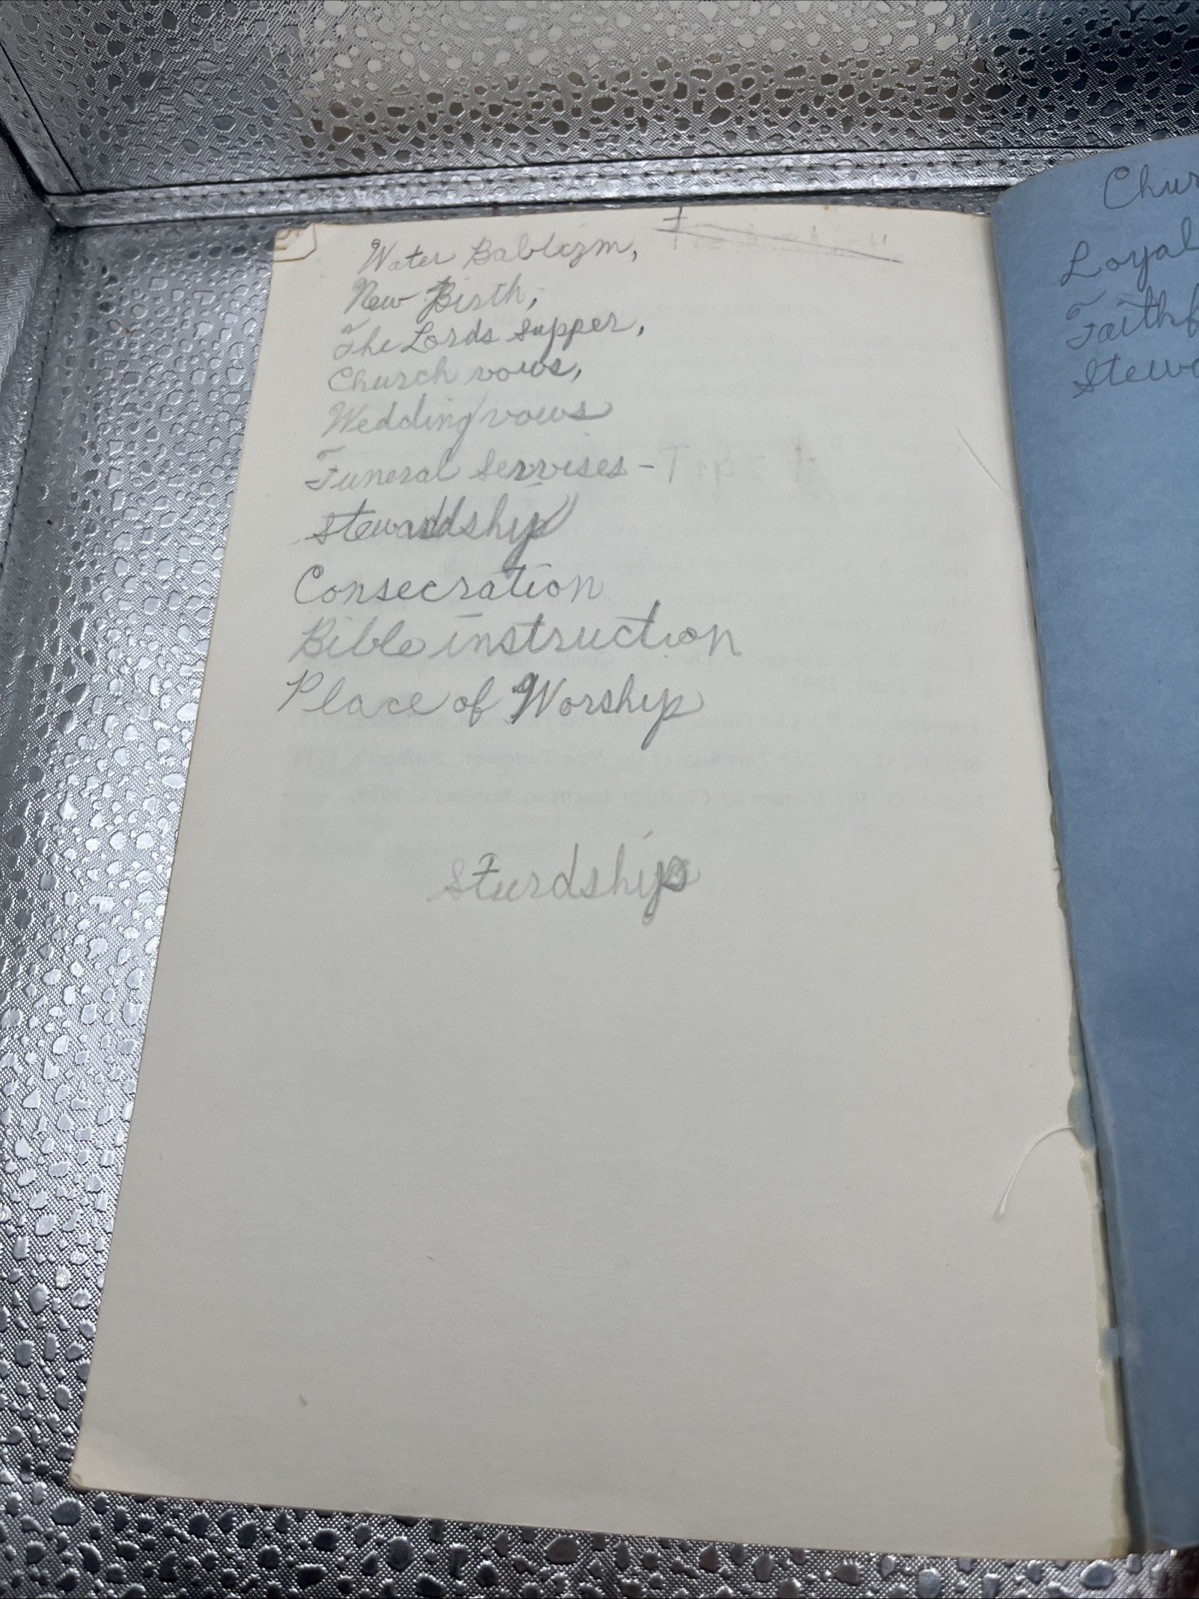 Water Bablizm,
New Birth,
The Lords supper,
Church vows,
Wedding vows
Funeral Servises -
Stewardship
Consecration
Bible instruction
Place of Worship
Sturdship
Chur
Loyal
Faithf
Stew